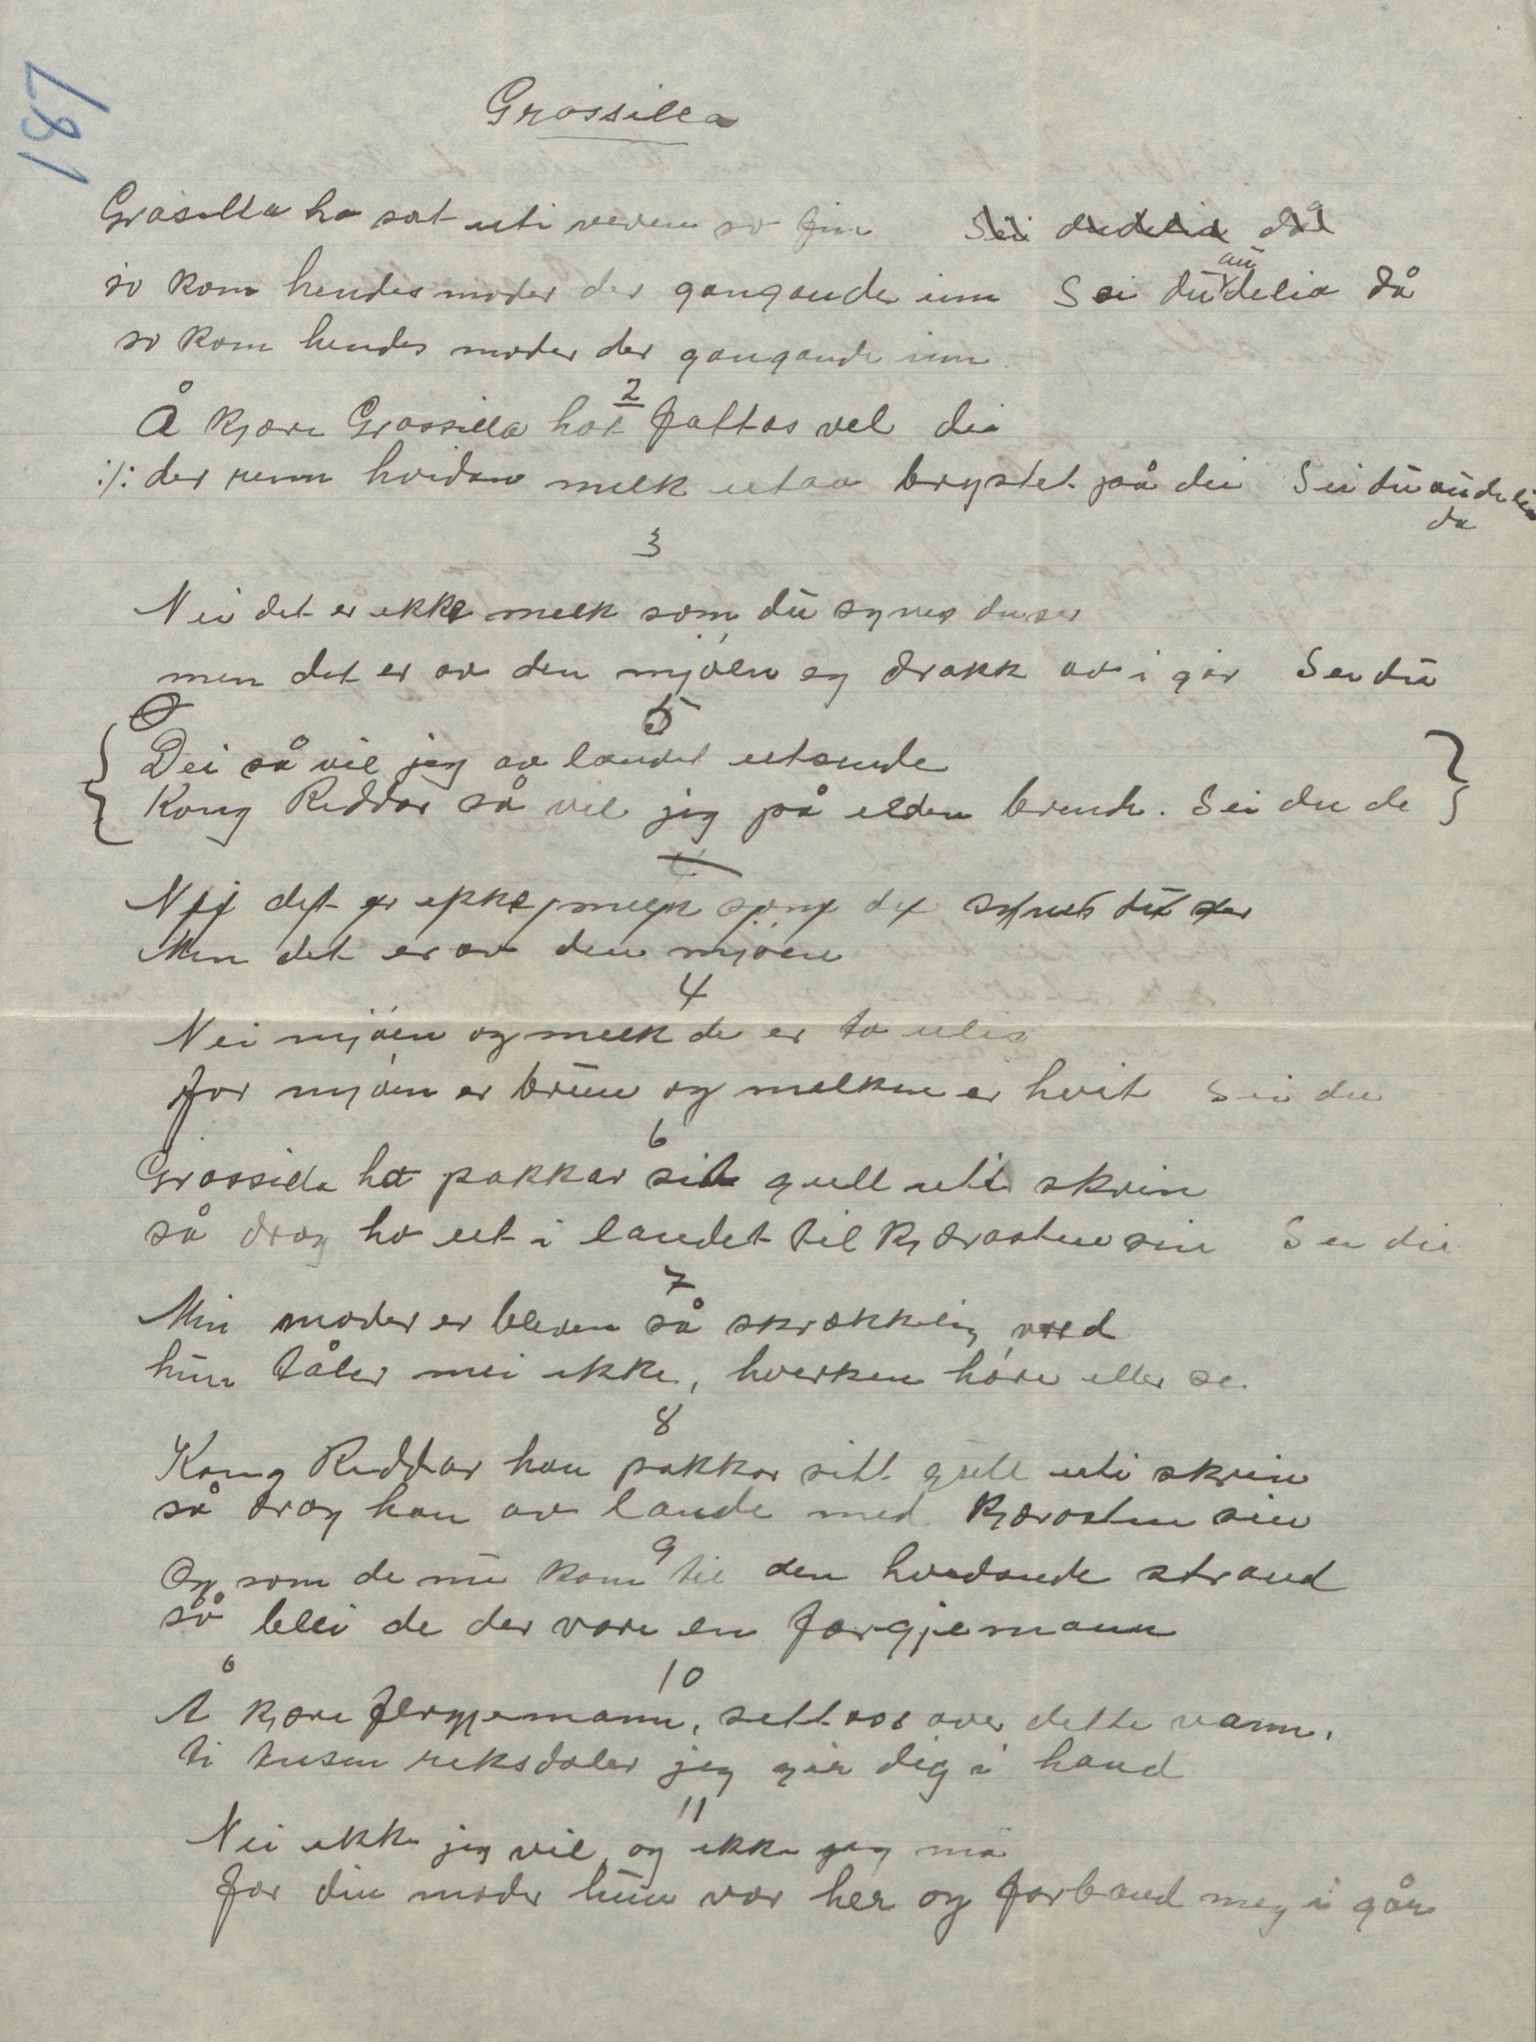 187
Grossilla
Grasilla ho sat uti veven so fin Sei dudelia då
so kom hendes moder der gangande inn Sei du au delia då
so kom hendes moder der gangande inn
2
Å kjære Grassilla hot fattas vel dei
:/: der renn hvidan melk utav brystet på dei Sei du audelia
da
3
Nei det er ikke melk som du synes du ser
men det er av den mjöen eg drakk av i går Sei du
5
Dei så vil jeg av landet utsende
Kong Riddar så vil jeg på elden brende. Sei du de
Nei det er ikke melk som du synes du ser
Men det er av den mjöen
4
Nei mjöen og melk de er to ulig
for mjöen er brun og melken er hvit Sei du
6
Grassilla ho pakkar sit gull uti skrin
så drog ho ut i landet til kjærasten sin Sei du
7
Min moder er bleven så skrækkelig vred
hun tåler mei ikke, hverken höre eller se.
8
Kong Riddar han pakkar sitt gull uti skrin
så drog han av lande med kjærasten sin
9
Og som de nu kom til den hvidande strand
så blei de der vare en færgjemann
10
Å kjære færgjemann, sett oss over dette vann,
ti tusen riksdaler jeg gir dig i hand
11
Nei ikke jeg vil og ikke jeg må
for din moder hun var her og forband meg i går